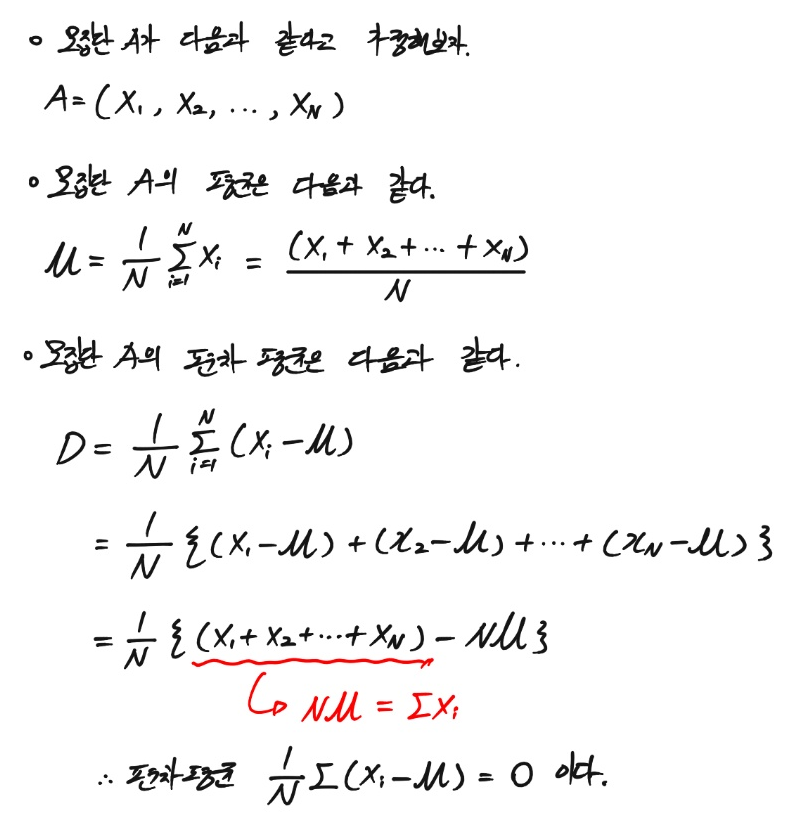 o 모집단 A가 다음과 같다고 가정해보자.
A = (X₁, X₂, ..., X_N)
o 모집단 A의 평균은 다음과 같다.
μ = 1/N Σ_{i=1}^{N} X_i = (X₁ + X₂ + ... + X_N) / N
o 모집단 A의 편차 평균은 다음과 같다.
D = 1/N Σ_{i=1}^{N} (X_i - μ)
= 1/N {(X₁-μ) + (x₂-μ) + ... + (x_N-μ)}
= 1/N {(X₁+X₂+...+X_N) - Nμ}
↳ Nμ = ΣX_i
∴ 편차평균 1/N Σ(X_i-μ) = 0 이다.